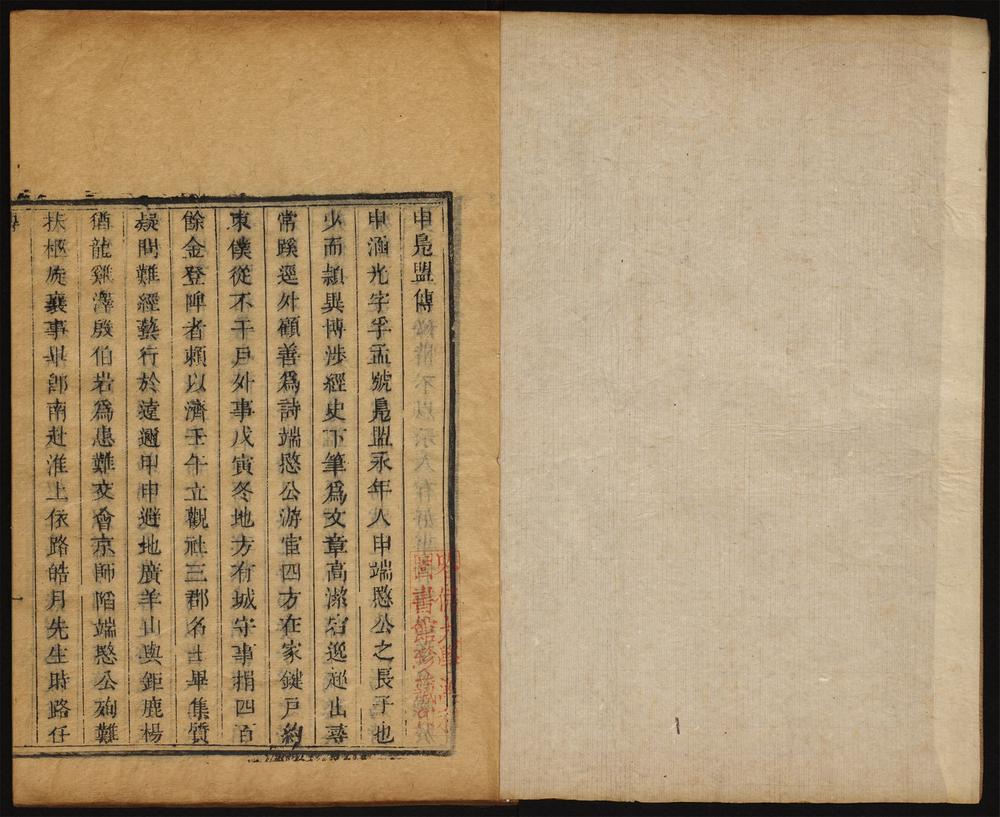 申鳧盟傳
申涵光字孚孟號鳧盟永年人申端愍公之長子也
少而穎異博涉經史下筆為文章高潔宕逸逈出尋
常蹊逕外顧善為詩端愍公游宦四方在家鍵戸約
束僕從不干戸外事戊寅冬地方有城守事捐四百
餘金登陴者賴以濟壬午立觀社三郡名士畢集質
疑問難經藝行於遠邇甲申避地廣羊山與鉅鹿楊
猶龍雞澤殷伯岩為患難交會京師陷端愍公殉難
扶柩旋襄事畢卽南赴淮上依路皓月先生時路任
圖書館